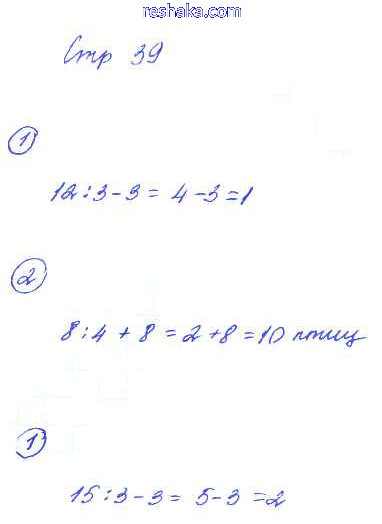 reshaka.com
Стр 39
1
12:3-3 = 4-3=1
2
8:4 + 8 = 2+8 = 10 птиц
1
15:3-3 = 5-3 =2